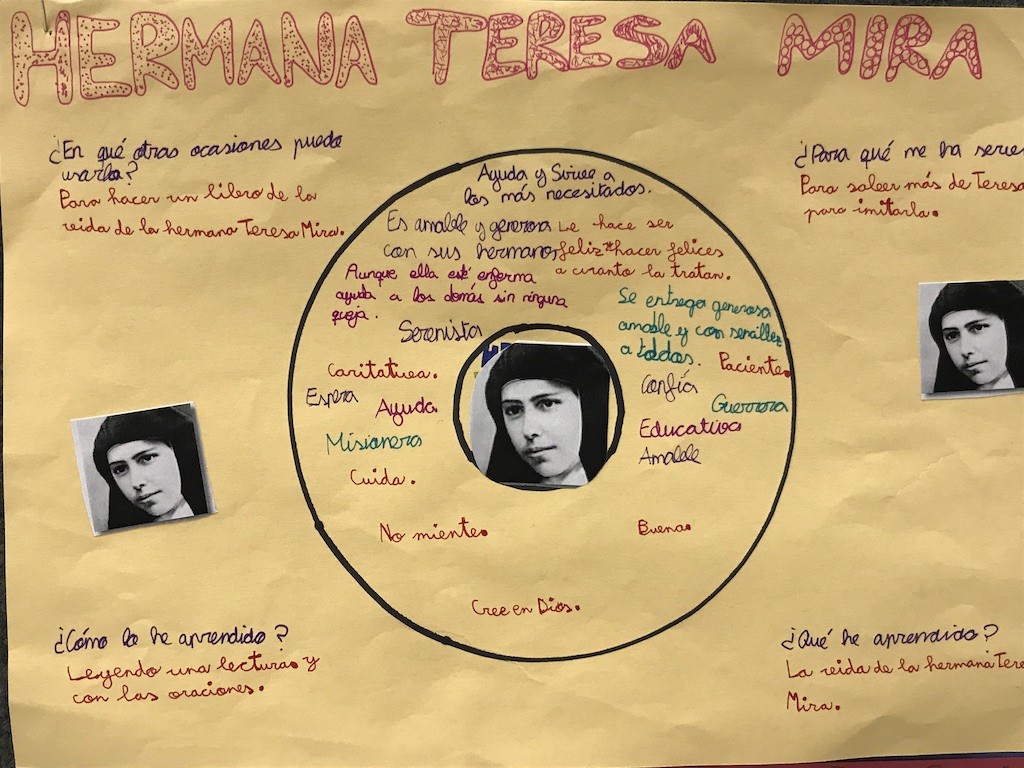 HERMANA TERESA MIRA
¿En qué otras ocasiones puedo
usarla?
Para hacer un libro de la
vida de la hermana Teresa Mira.
¿Para qué me ha
Para saber más de Teresa
para imitarla.
Ayuda y Sirve a
los más necesitados.
Es amable y generosa
con sus hermanos
Le hace ser
feliz hacer felices
a cuanto la tratan.
Aunque ella esté enferma
ayuda a los demás sin ninguna
queja.
Se entrega generosa
amable y con sencillez
a toddos.
Serenista
Caritativa.
Espera
Ayuda
Misionera
Cuida.
No miente.
Paciente.
Confía
Guerrera
Educativa
Amable
Buena.
Cree en Dios.
¿Cómo lo he aprendido?
Leyendo una lectura y
con las oraciones.
¿Qué he aprendido?
La vida de la hermana Tere
Mira.